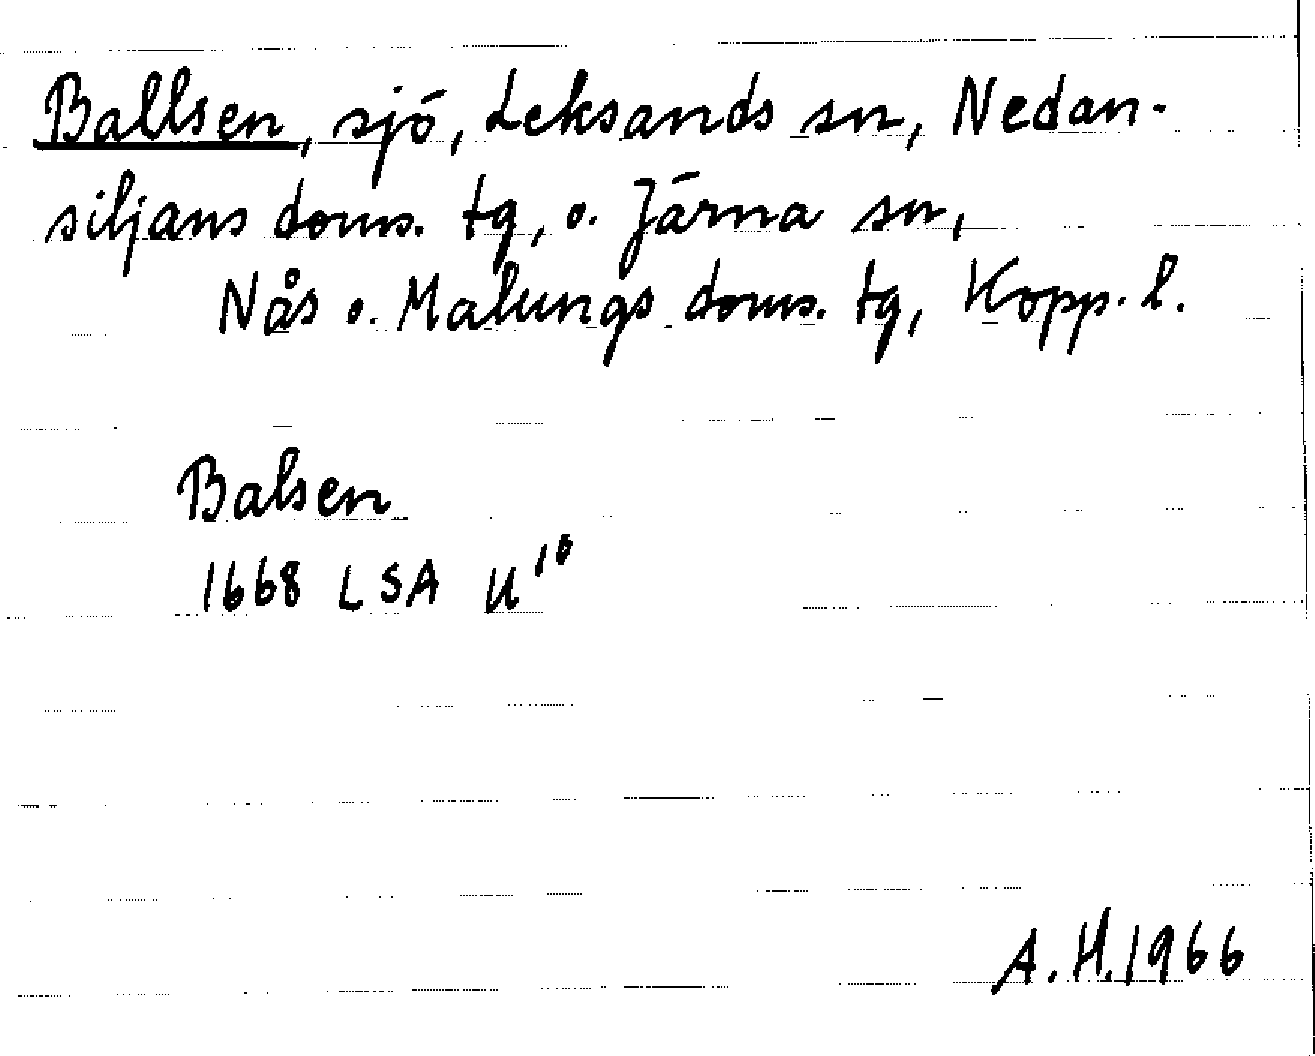 Ballsen, sjö, Leksands sn, Nedan-
siljans doms. tg, o. Järna sn,
Nås o. Malungs doms. tg, Kopp. l.
Balsen
1668 LSA U¹⁰
A.H. 1966